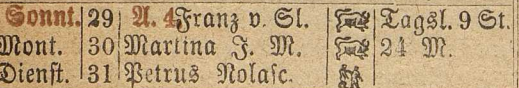 Sonnt. 29 A. 4 Franz v. Sl. Tagsl. 9 St.
Mont. 30 Martina J. M. 24 M.
Dienst. 31 Petrus Nolasc.